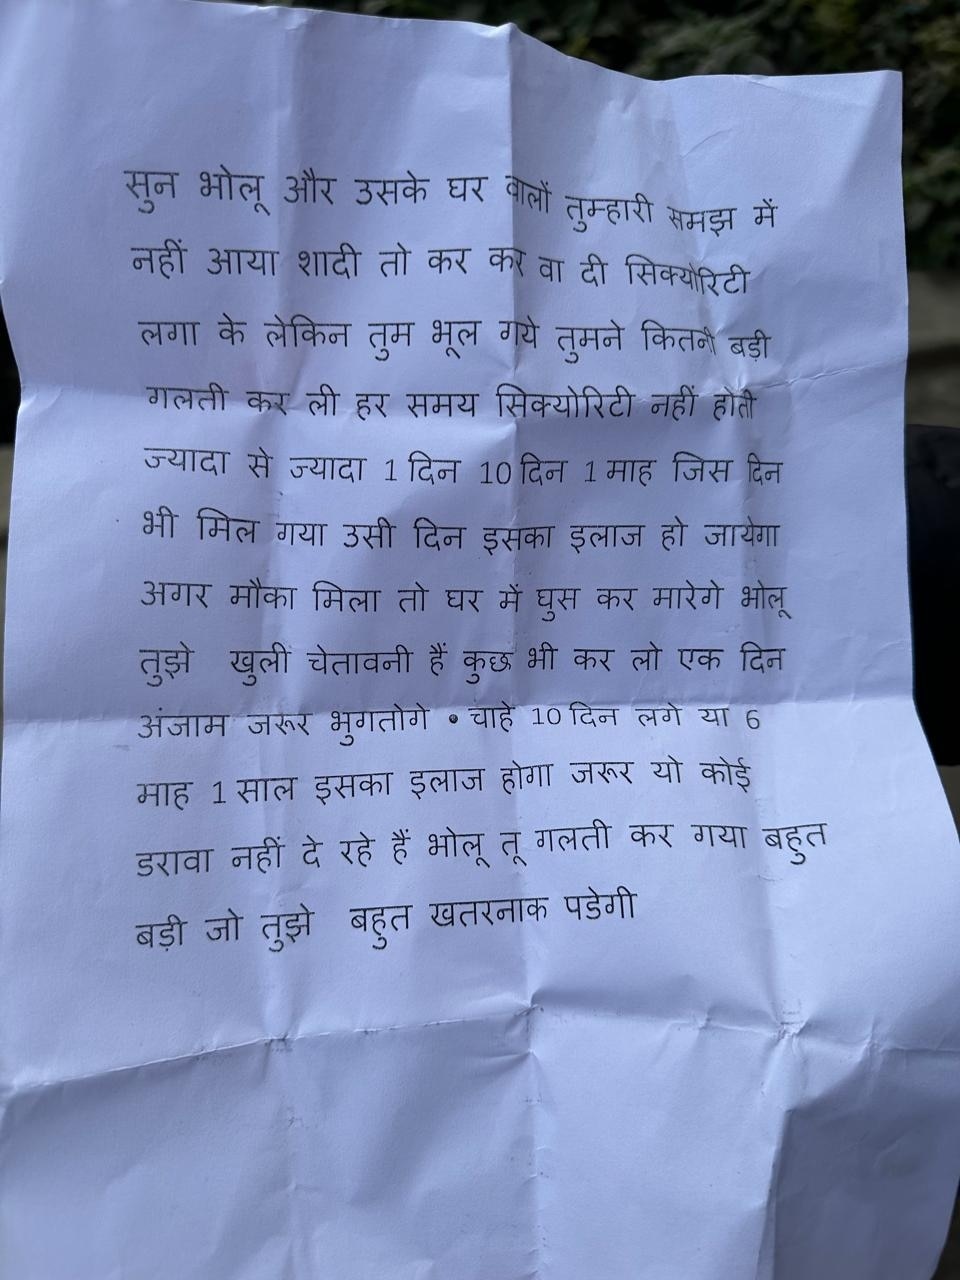 सुन भोलू और उसके घर वालों तुम्हारी समझ में
नहीं आया शादी तो कर कर वा दी सिक्योरिटी
लगा के लेकिन तुम भूल गये तुमने कितनी बड़ी
गलती कर ली हर समय सिक्योरिटी नहीं होती
ज्यादा से ज्यादा 1 दिन 10 दिन 1 माह जिस दिन
भी मिल गया उसी दिन इसका इलाज हो जायेगा
अगर मौका मिला तो घर में घुस कर मारेगे भोलू
तुझे खुली चेतावनी हैं कुछ भी कर लो एक दिन
अंजाम जरूर भुगतोगे • चाहे 10 दिन लगे या 6
माह 1 साल इसका इलाज होगा जरूर यो कोई
डरावा नहीं दे रहे हैं भोलू तू गलती कर गया बहुत
बड़ी जो तुझे बहुत खतरनाक पडेगी